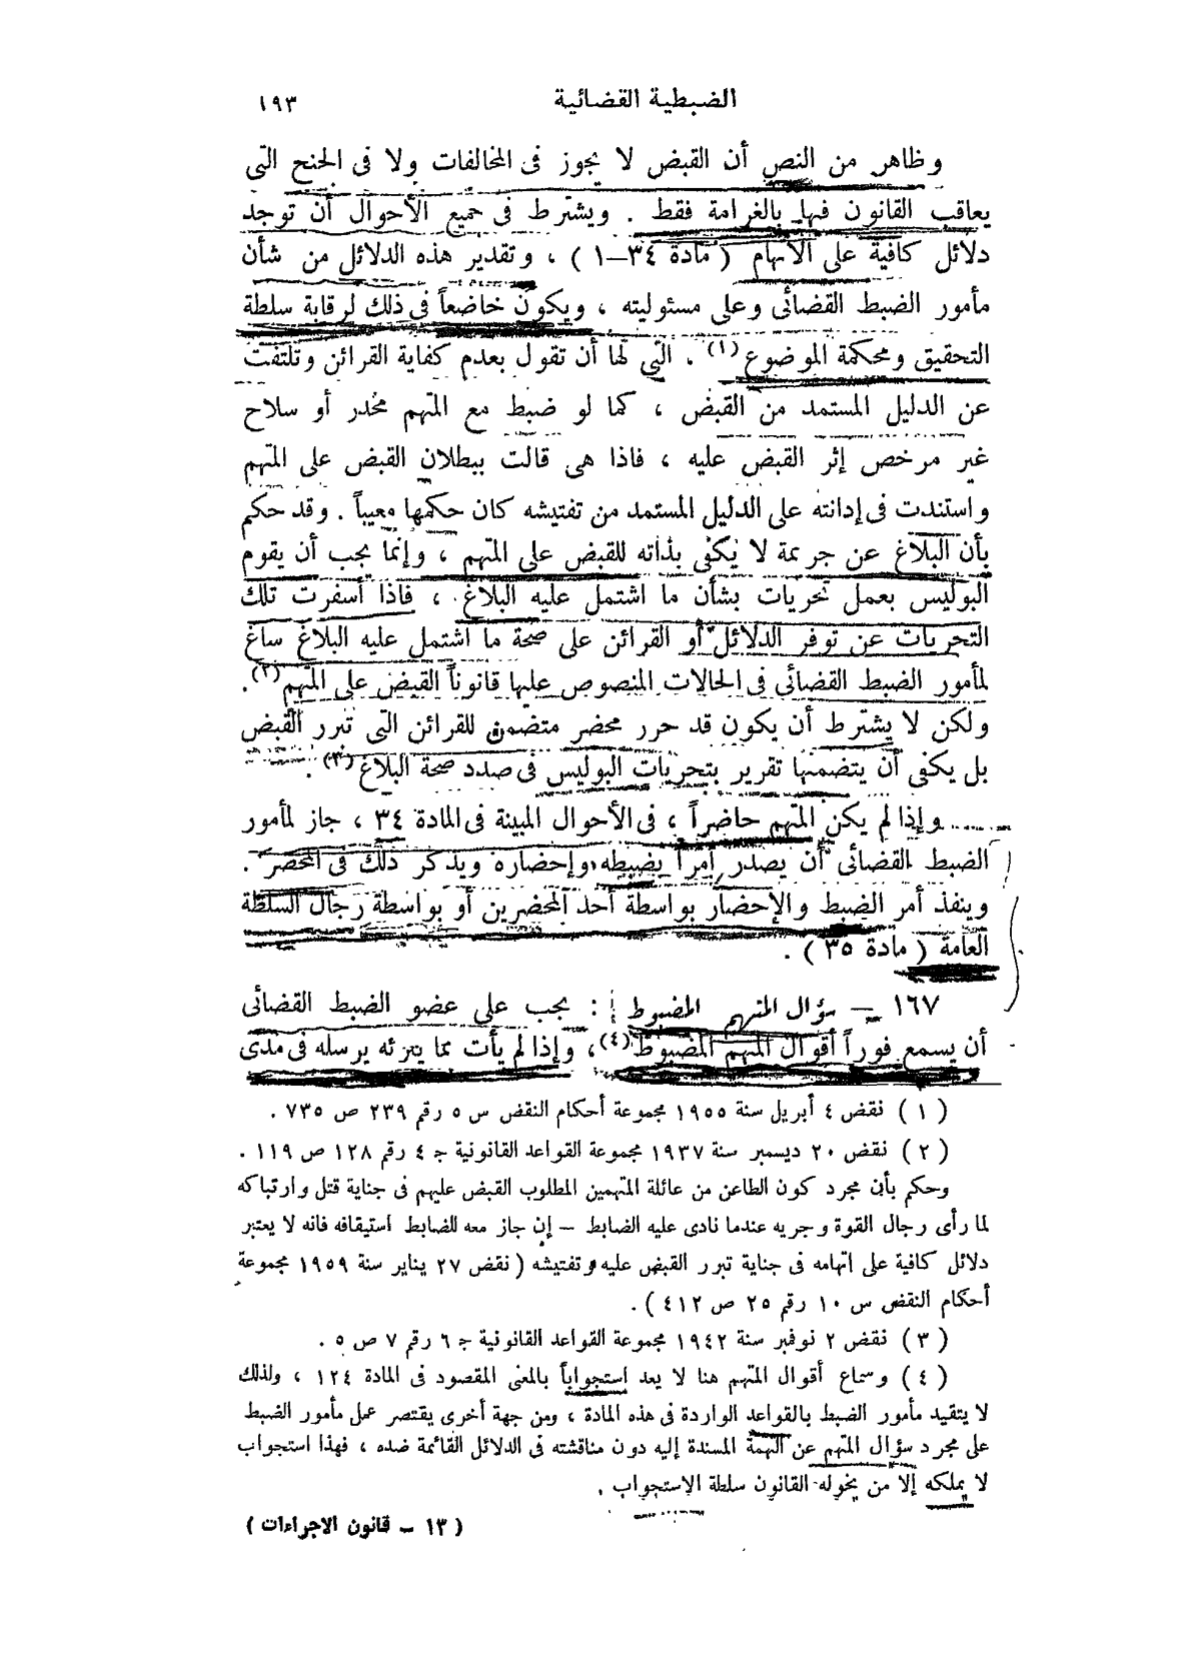 الضبطية القضائية ١٩٣
وظاهر من النص أن القبض لا يجوز فى المخالفات ولا فى الجنح التى
يعاقب القانون فيها بالغرامة فقط . ويشترط فى جميع الأحوال أن توجد
دلائل كافية على الاتهام ( مادة ٣٤–١ ) ، وتقدير هذه الدلائل من شأن
مأمور الضبط القضائى وعلى مسئوليته ، ويكون خاضعاً فى ذلك لرقابة سلطة
التحقيق ومحكمة الموضوع (١) . التى لها أن تقول بعدم كفاية القرائن وتلتفت
عن الدليل المستمد من القبض ، كما لو ضبط مع المتهم مخدر أو سلاح
غير مرخص إثر القبض عليه ، فاذا هى قالت ببطلان القبض على المتهم
واستندت فى إدانته على الدليل المستمد من تفتيشه كان حكمها معيباً . وقد حكم
بأن البلاغ عن جريمة لا يكفى بذاته للقبض على المتهم ، وإنما يجب أن يقوم
البوليس بعمل تحريات بشأن ما اشتمل عليه البلاغ ، فاذا أسفرت تلك
التحريات عن توفر الدلائل أو القرائن على صحة ما اشتمل عليه البلاغ ساغ
لمأمور الضبط القضائى فى الحالات المنصوص عليها قانوناً القبض على المتهم (٢).
ولكن لا يشترط أن يكون قد حرر محضر متضمن للقرائن التى تبرر القبض
بل يكفى أن يتضمنها تقرير بتحريات البوليس فى صدد صحة البلاغ (٣) .
وإذا لم يكن المتهم حاضراً ، فى الأحوال المبينة فى المادة ٣٤ ، جاز لمأمور
الضبط القضائى أن يصدر أمراً بضبطه وإحضاره ويذكر ذلك فى المحضر .
وينفذ أمر الضبط والإحضار بواسطة أحد المحضرين أو بواسطة رجال السلطة
العامة ( مادة ٣٥ ) .
١٦٧ – سؤال المتهم المضبوط : يجب على عضو الضبط القضائى
أن يسمع فوراً أقوال المتهم المضبوط (٤)، وإذا لم يأت بما يبرئه يرسله فى مدى
( ١ ) نقض ٤ أبريل سنة ١٩٥٥ مجموعة أحكام النقض س ٥ رقم ٢٣٩ ص ٧٣٥ .
( ٢ ) نقض ٢٠ ديسمبر سنة ١٩٣٧ مجموعة القواعد القانونية ج ٤ رقم ١٢٨ ص ١١٩ .
وحكم بأن مجرد كون الطاعن من عائلة المتهمين المطلوب القبض عليهم فى جناية قتل وارتباكه
لما رأى رجال القوة وجريه عندما نادى عليه الضابط – إن جاز معه للضابط استيقافه فانه لا يعتبر
دلائل كافية على اتهامه فى جناية تبرر القبض عليه وتفتيشه ( نقض ٢٧ يناير سنة ١٩٥٩ مجموعة
أحكام النقض س ١٠ رقم ٢٥ ص ٤١٢ ) .
( ٣ ) نقض ٢ نوفمبر سنة ١٩٤٢ مجموعة القواعد القانونية ج ٦ رقم ٧ ص ٥ .
( ٤ ) وسماع أقوال المتهم هنا لا يعد استجواباً بالمعنى المقصود فى المادة ١٢٤ ، ولذلك
لا يتقيد مأمور الضبط بالقواعد الواردة فى هذه المادة ، ومن جهة أخرى يقتصر عمل مأمور الضبط
على مجرد سؤال المتهم عن التهمة المسندة إليه دون مناقشته فى الدلائل القائمة ضده ، فهذا استجواب
لا يملكه إلا من يخوله القانون سلطة الإستجواب .
( ١٣ – قانون الاجراءات )